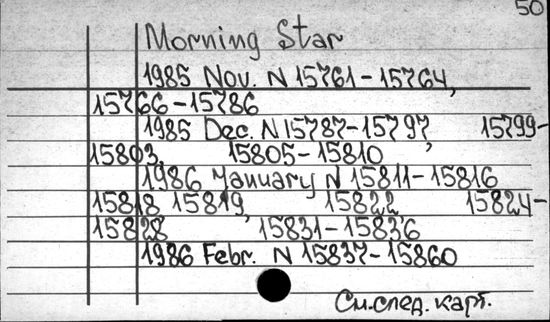 50
Morning Star
1985 Nov. N 15761-15764,
15766-15786
1985 Dec. N 15787-15797, 15799-
15803, 15805-15810
1986 January N 15811-15816
15818 15819, 15822 15824-
15828 15831-15836
1986 Febr. N 15837-15860
См.след.карт.